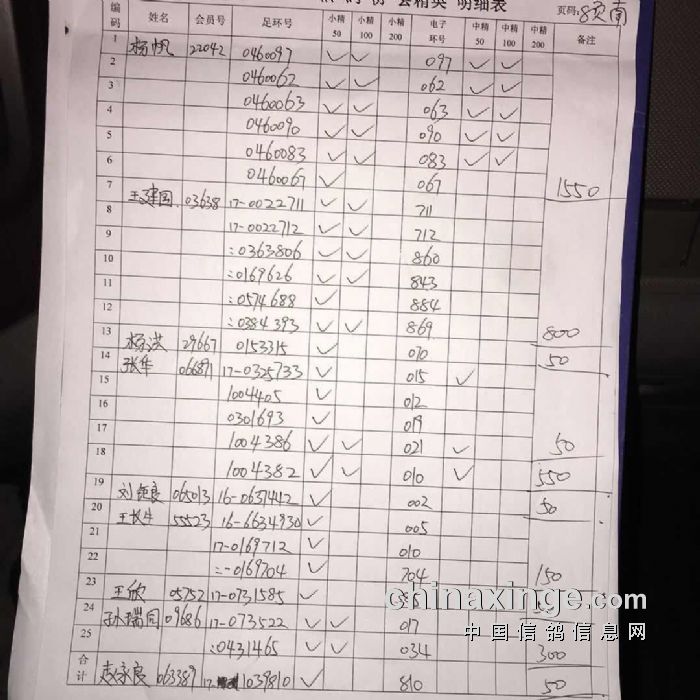 会精英 明细表 页码: 8页南
编码 姓名 会员号 足环号 小精50 小精100 小精200 电子环号 中精50 中精100 中精200 备注
1 杨帆 22042 0460097 ✓ ✓ 097 ✓ ✓
2 0460062 ✓ ✓ 062 ✓ ✓
3 0460063 ✓ ✓ 063 ✓ ✓
4 0460090 ✓ ✓ 090 ✓ ✓
5 0460083 ✓ ✓ 083 ✓ ✓
6 0460067 ✓ 067 1550
7 王建国 03638 17-0022711 ✓ ✓ 711
8 17-0022712 ✓ ✓ 712
9 :0363806 ✓ ✓ 860
10 :0169626 ✓ ✓ 843
11 :0574688 ✓ 884
12 :0384393 ✓ ✓ 869 800
13 杨洪 29667 0153315 ✓ 070 50
14 张华 17-0325733 ✓ 015 ✓
15 1004405 ✓ 012
16 0301693 ✓ 019
17 1004386 ✓ ✓ 021 ✓ 50
18 1004382 ✓ ✓ 010 ✓ 550
19 065013 16-0637442 ✓ 002 50
20 王长生 55523 16-6634930 ✓ 005
21 17-0169712 ✓ 010
22 :-0169704 ✓ 704 150
23 王欣 05752 17-0731585 ✓
24 孙瑞同 09686 17-073522 ✓ ✓ 017
25 :0431465 ✓ ✓ 034 300
合计 赵永良 063389 17- 1039810 ✓ 810 50
chinaxinge.com
中国信鸽信息网